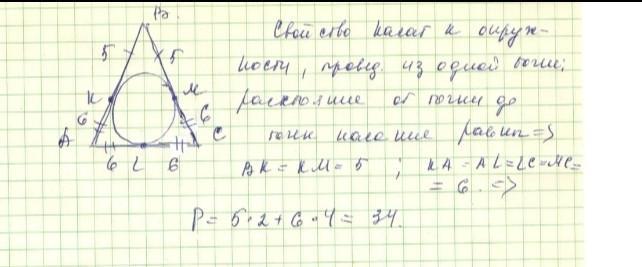 B
5 5
K M
6 6
A C
6 L 6
Свойство касат к окруж-
ности, провед. из одной точки:
расстояние от точки до
точки касание равны =>
BK = KM = 5 ; KA = AL = LC = MC =
= 6. =>
P = 5·2 + 6·4 = 34.